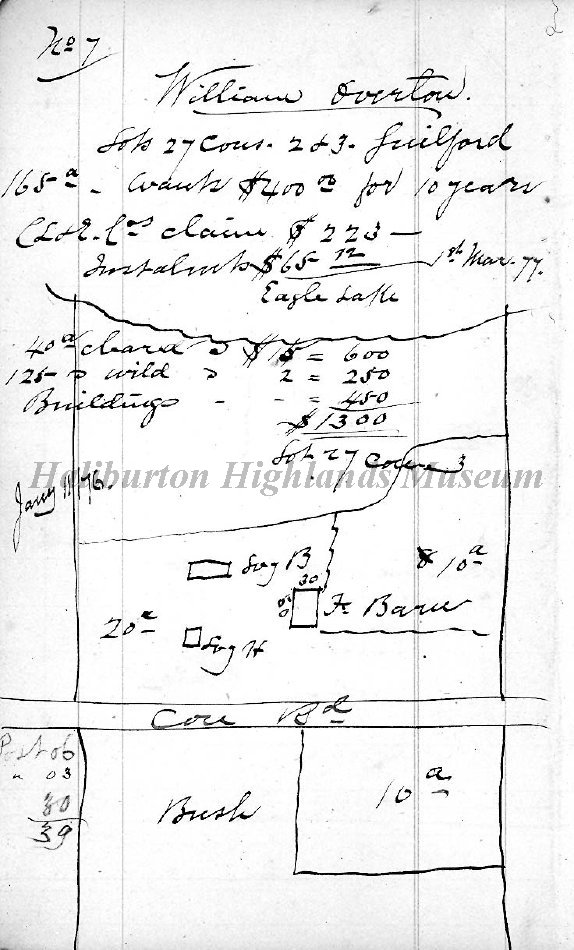 No 7
William Overton.
Lots 27 Cons. 2 & 3. Guilford
165 a - Wants $400 00 for 10 years
C L & E. Cos claim $223 —
Instalmts $65 12 1st Mar. 77.
Eagle Lake
40 a cleard @ $15 = 600
125 " wild " 2 = 250
Buildings - - = 450
$1300
Lot 27 Con 3
Haliburton Highlands Museum
Jany 11/76.
Log B
30
50
Fr Barn
10 a
20 a
Log H
Con Rd
Post ob
" 03
30
39
Bush
10 a